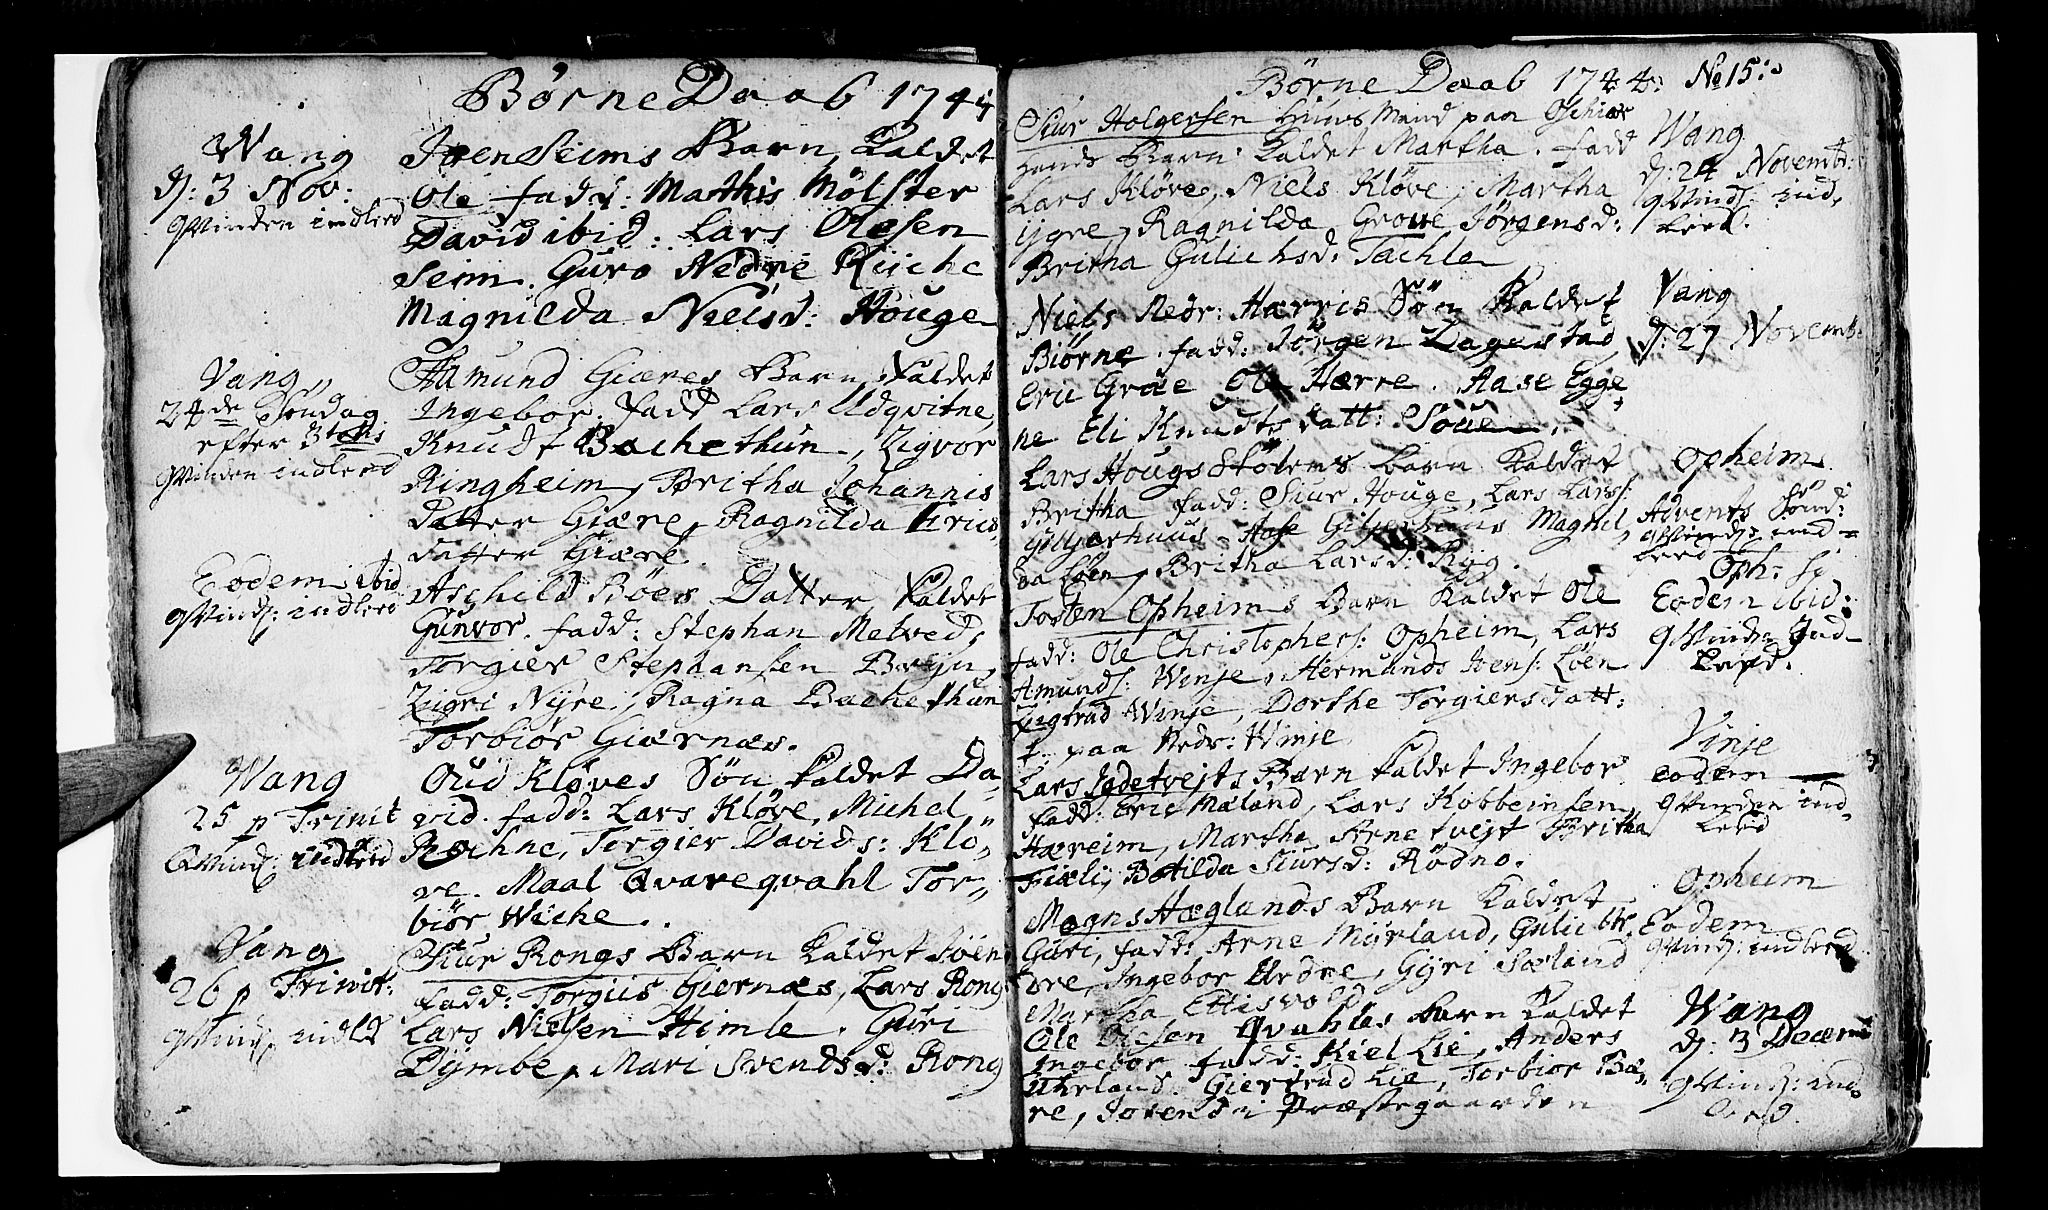 Børne Daab 1744
Wang
d: 3 Nov:
qvinden indleed
Joen Seims Barn Kaldet
Ole fadd: Mathis Mölster
David ibid: Lars Olesen
Seim. Guro Nedre Rüche
Magnilda Nielsd: Houge
Vang
24de Söndag
efter
Qvinden indleed
Aamund Giæres Barn, Kaldet
Ingebor. fadd Lars Udqvitne,
Knudt Bachethun, Zigvor
Ringheim, Britha Johannis
datter Giære, Ragnilda Erics
datter Giære.
Eodem ibid
qvind: indleed
Aschild Böes Datter Kaldet
Gunvor. fadd: Stephan Melved,
Torgier Stephansen Bryn,
Zigri Nyre, Ragna Bachethun
Torbiör Giærnæs.
Wang
25 p Trinit
Qvind: indleed
Oud Kløves Søn kaldet Da-
vid. fadd: Lars Kløve, Michel
Rochne, Torgier Davids: Klö-
ve. Maal Qvareqvahl Tor-
biör Wiche.
Vang
26 p Trinit:
qvind indld
Siur Rongs Barn Kaldet Joen
fadd: Torgiis Giernæs, Lars Rong
Lars Nielsen Himle. Guri
Dymbe, Mari Svendsd: Rong
Børne Daab 1744: No 15:
Siur Holgersen Huus Mand paa
hands Barn Kaldet Martha. fadd
Lars Kløve, Niels Kløve, Martha
Ygre, Ragnilda Grove Jörgensd:
Britha Gulichsd: Tachle
Wang
d: 24 Novembr:
qvind: ind,
leed.
Niels Nedr: Hærris Sön Kaldet
Biörne. fadd: Jörgen Lagestad,
Eric Græe Ole Hærre. Aase Egge
ne Eli Knudts datt: Soue
Vang
d: 27 Novemb:
Lars Hougs Stölens barn Kaldet
Britha fadd: Siur Houge, Lars Larss:
Gilljarhuus Magnil,
da Löen, Britha Larsd: Ryg.
Opheim
Advents Sönd:
qvind: ind-
leed
Torsten Opheims Barn Kaldet Ole
fadd: Ole Christophers: Opheim, Lars
Amunds: Winje, Hermunds Joens: Löen
Zigtrud Winje, Dorthe Torgiersdatt:
paa Nedr: Winje
Eodem ibid:
qvind: Ind-
leed.
Lars Sædetvejts Barn kaldet Ingebor
fadd: Eric Mæland, Lars Kobbeinsen
Hæreim, Martha Arnetvejt Britha
Fiæli, Botilda Siursd: Rödno.
Vinje
eodem
qvinden ind-
leed
Magns Hæglands Barn Kaldet
Guri, fadd: Arne Mürland, Gulich
öre, Ingebor Urdre, Gÿri Sæland
Martha Ettisvold
Opheim
Eodem
qvind: indleed
Ole Olesen Qvahles barn Kaldet
Ingebor fadd: Kiel Lie, Anders
Uhrland. Giertrud Lie, Torbior Bæ,
re, i Præstegaarden
Wang
d: 3 Decemb
qvind: ind-
leed.